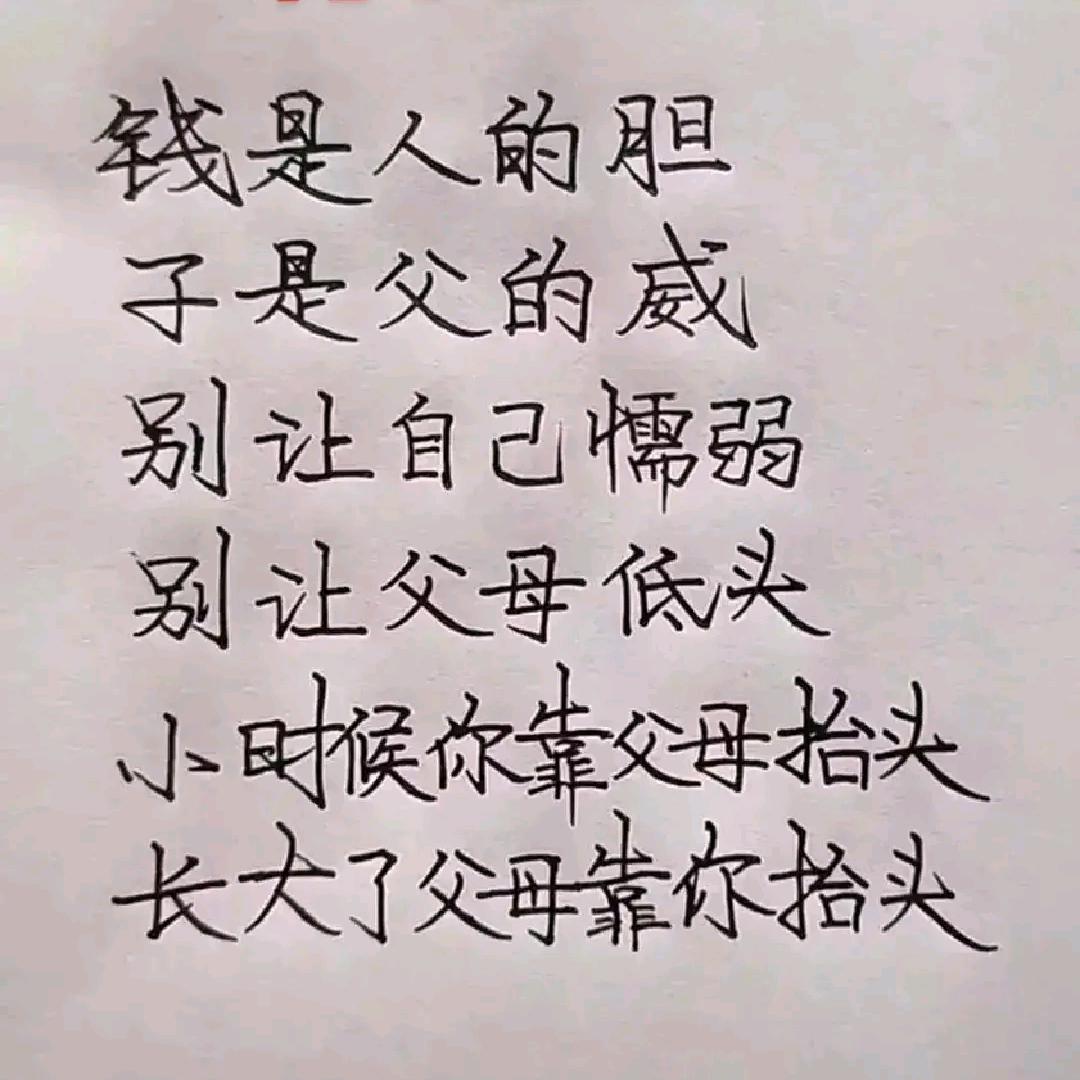 钱是人的胆
子是父的威
别让自己懦弱
别让父母低头
小时候你靠父母抬头
长大了父母靠你抬头